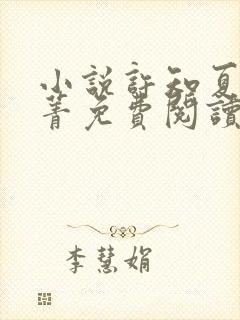 小說許知夏
菁免費閱讀
李慧娟